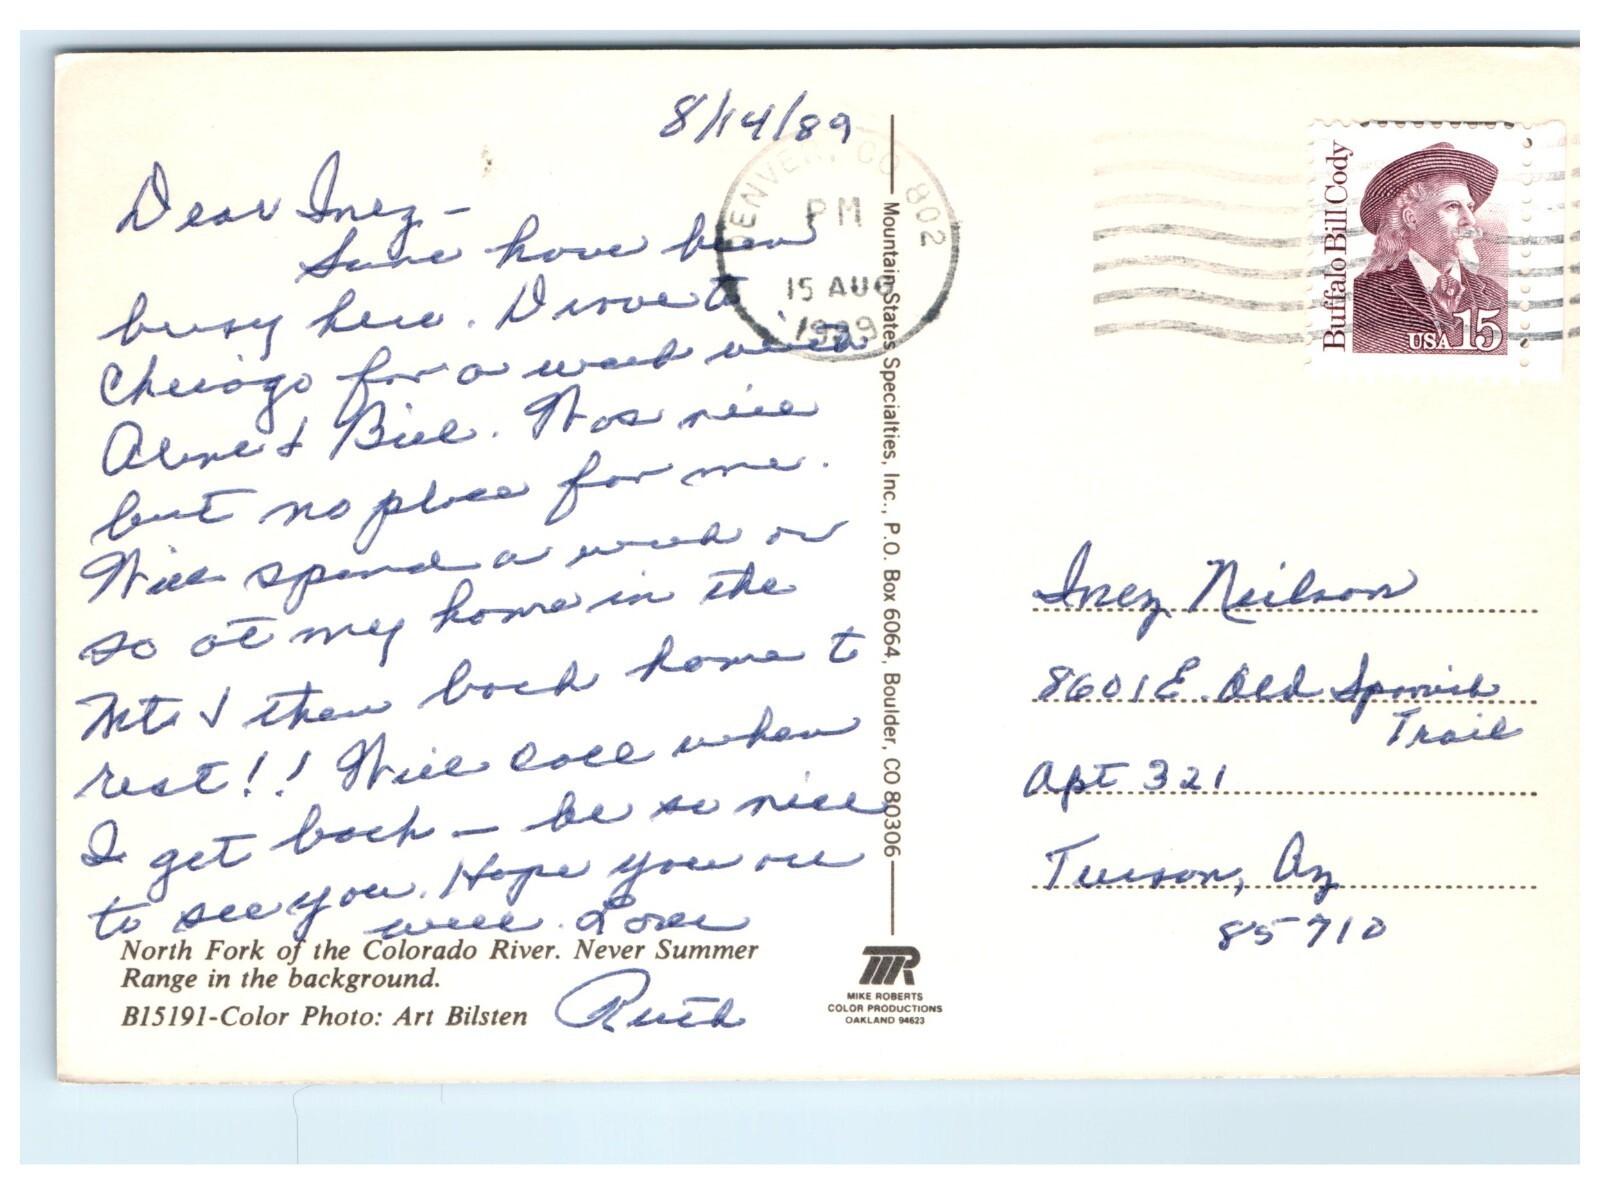 8/14/89
Dear Inez -
Sure have been
busy here. Drove to
Chicago for a week with
Alene & Bill. Was nice
but no place for me.
Will spend a week or
so at my home in the
Mts & then back home to
rest!! Will call when
I get back - be so nice
to see you. Hope you are
well. Love
Ruth
North Fork of the Colorado River. Never Summer
Range in the background.
B15191-Color Photo: Art Bilsten
Mountain States Specialties, Inc., P.O. Box 6064, Boulder, CO 80306
MR
MIKE ROBERTS
COLOR PRODUCTIONS
OAKLAND 94623
DENVER, CO 802
PM
15 AUG
1989
Buffalo Bill Cody
USA 15
Inez Neilson
8601 E. Old Spanish
Trail
Apt 321
Tucson, Az
85710